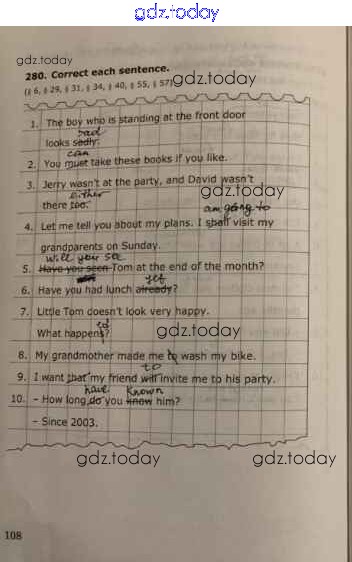 gdz.today
gdz.today
280. Correct each sentence.
(§ 6, § 29, § 31, § 34, § 40, § 55, § 57)
gdz.today
1. The boy who is standing at the front door
sad
looks sadly.
can
2. You must take these books if you like.
3. Jerry wasn't at the party, and David wasn't
either
there too.
gdz.today
am going to
4. Let me tell you about my plans. I shall visit my
grandparents on Sunday.
will you see
5. Have you seen Tom at the end of the month?
yet
6. Have you had lunch already?
7. Little Tom doesn't look very happy.
ed
What happens?
gdz.today
8. My grandmother made me to wash my bike.
to
9. I want that my friend will invite me to his party.
have known
10. – How long do you know him?
– Since 2003.
gdz.today
gdz.today
108
gdz.today